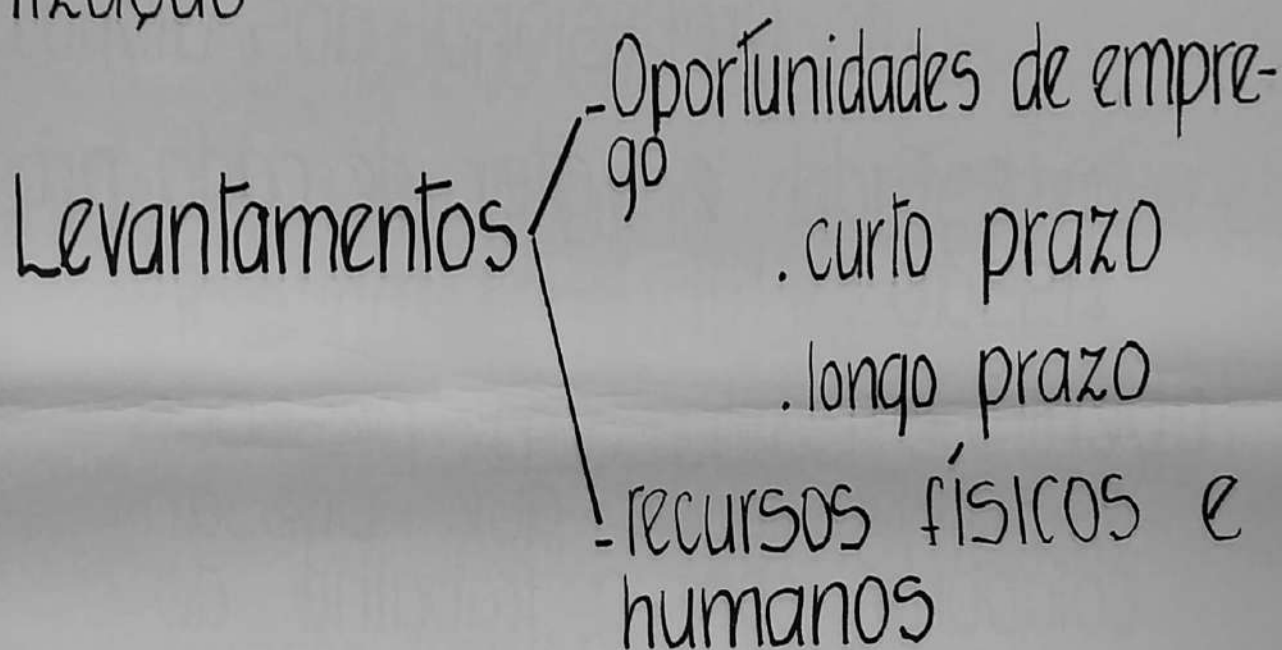 Levantamentos
- Oportunidades de empre-
go
. curto prazo
. longo prazo
- recursos físicos e
humanos